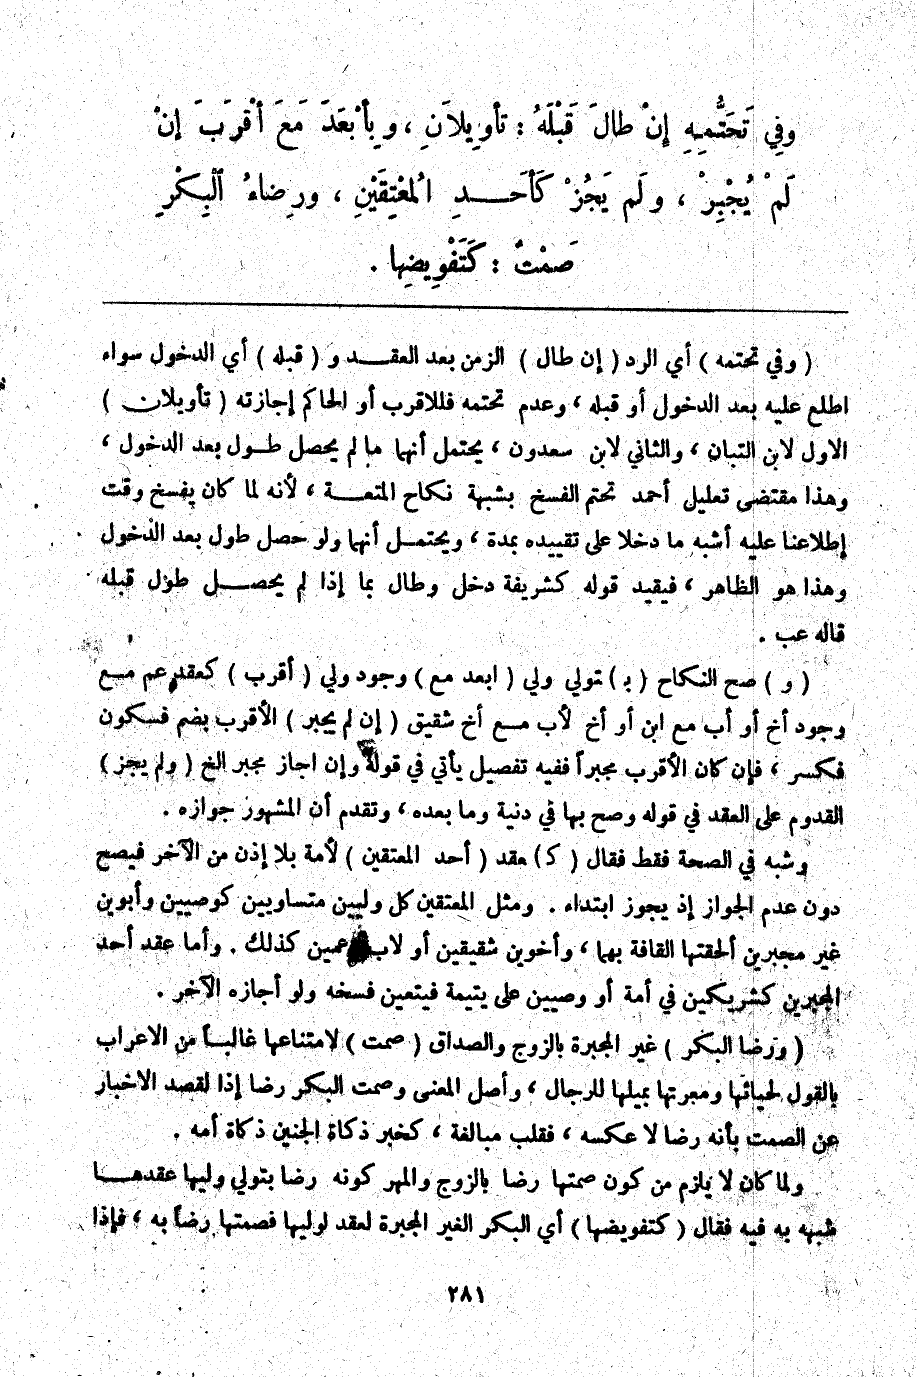 وفِي تَحَتُّمِهِ إِنْ طالَ قَبْلَهُ : تأوِيلاَنِ ، وبِأَبْعَدَ مَعَ أَقْرَبَ إِنْ
لَمْ يُجْبِرْ ، ولَم يَجُزْ كَأَحَـــدِ الْمُعْتِقَيْنِ ، ورِضاءُ الْبِكْرِ
صَمْتٌ : كَتَفْوِيضِها .
( وفي تحتمه ) أي الرد ( إن طال ) الزمن بعد العقـــد و ( قبله ) أي الدخول سواء
اطلع عليه بعد الدخول أو قبله ، وعدم تحتمه فللاقرب أو الحاكم إجازته ( تأويلان )
الاول لابن التبان ، والثاني لابن سعدون ، يحتمل أنهما ما لم يحصل طـــول بعد الدخول ،
وهذا مقتضى تعليل أحمد تحتم الفسخ بشبهة نكاح المتعـــة ، لأنه لما كان يفسخ وقت
إطلاعنا عليه أشبه ما دخلا على تقييده بمدة ، ويحتمـــل أنهما ولو حصل طول بعد الدخول
وهذا هو الظاهر ، فيقيد قوله كشريفة دخل وطال بما إذا لم يحصـــل طول قبله
قاله عب .
( و ) صح النكاح ( بـ ) تولي ولي ( ابعد مع ) وجود ولي ( أقرب ) كعقد عم مـــع
وجود أخ أو أب مع ابن أو أخ لأب مـــع أخ شقيق ( إن لم يجبر ) الأقرب بضم فسكون
فكسر ، فإن كان الأقرب مجبراً ففيه تفصيل يأتي في قوله وإن اجاز مجبر الخ ( ولم يجز )
القدوم على العقد في قوله وصح بها في دنية وما بعده ، وتقدم أن المشهور جوازه .
وشبه في الصحة فقط فقال ( كـ ) عقد ( أحد المعتقين ) لأمة بلا إذن من الآخر فيصح
دون عدم الجواز إذ يجوز ابتداء . ومثل المعتقين كل وليين متساويين كوصيين وأبوين
غير مجبرين ألحقتها القافة بهما ، وأخوين شقيقين أو لاب وعمين كذلك . وأما عقد أحد
المجبرين كشريكين في أمة أو وصيين على يتيمة فيتعين فسخه ولو أجازه الآخر .
( ورضا البكر ) غير المجبرة بالزوج والصداق ( صمت ) لامتناعها غالبـــاً من الاعراب
بالقول لحيائها ومعرتها بميلها للرجال ، وأصل المعنى وصمت البكر رضا إذا لقصد الاخبار
عن الصمت بأنه رضا لا عكسه ، فقلب مبالغة ، كخبر ذكاة الجنين ذكاة أمه .
ولما كان لا يلزم من كون صمتها رضا بالزوج والمهر كونه رضا بتولي وليها عقدهـــا
شبهه به فيه فقال ( كتفويضها ) أي البكر الغير المجبرة لعقد لوليها فصمتها رضاً به ، فإذا
٢٨١